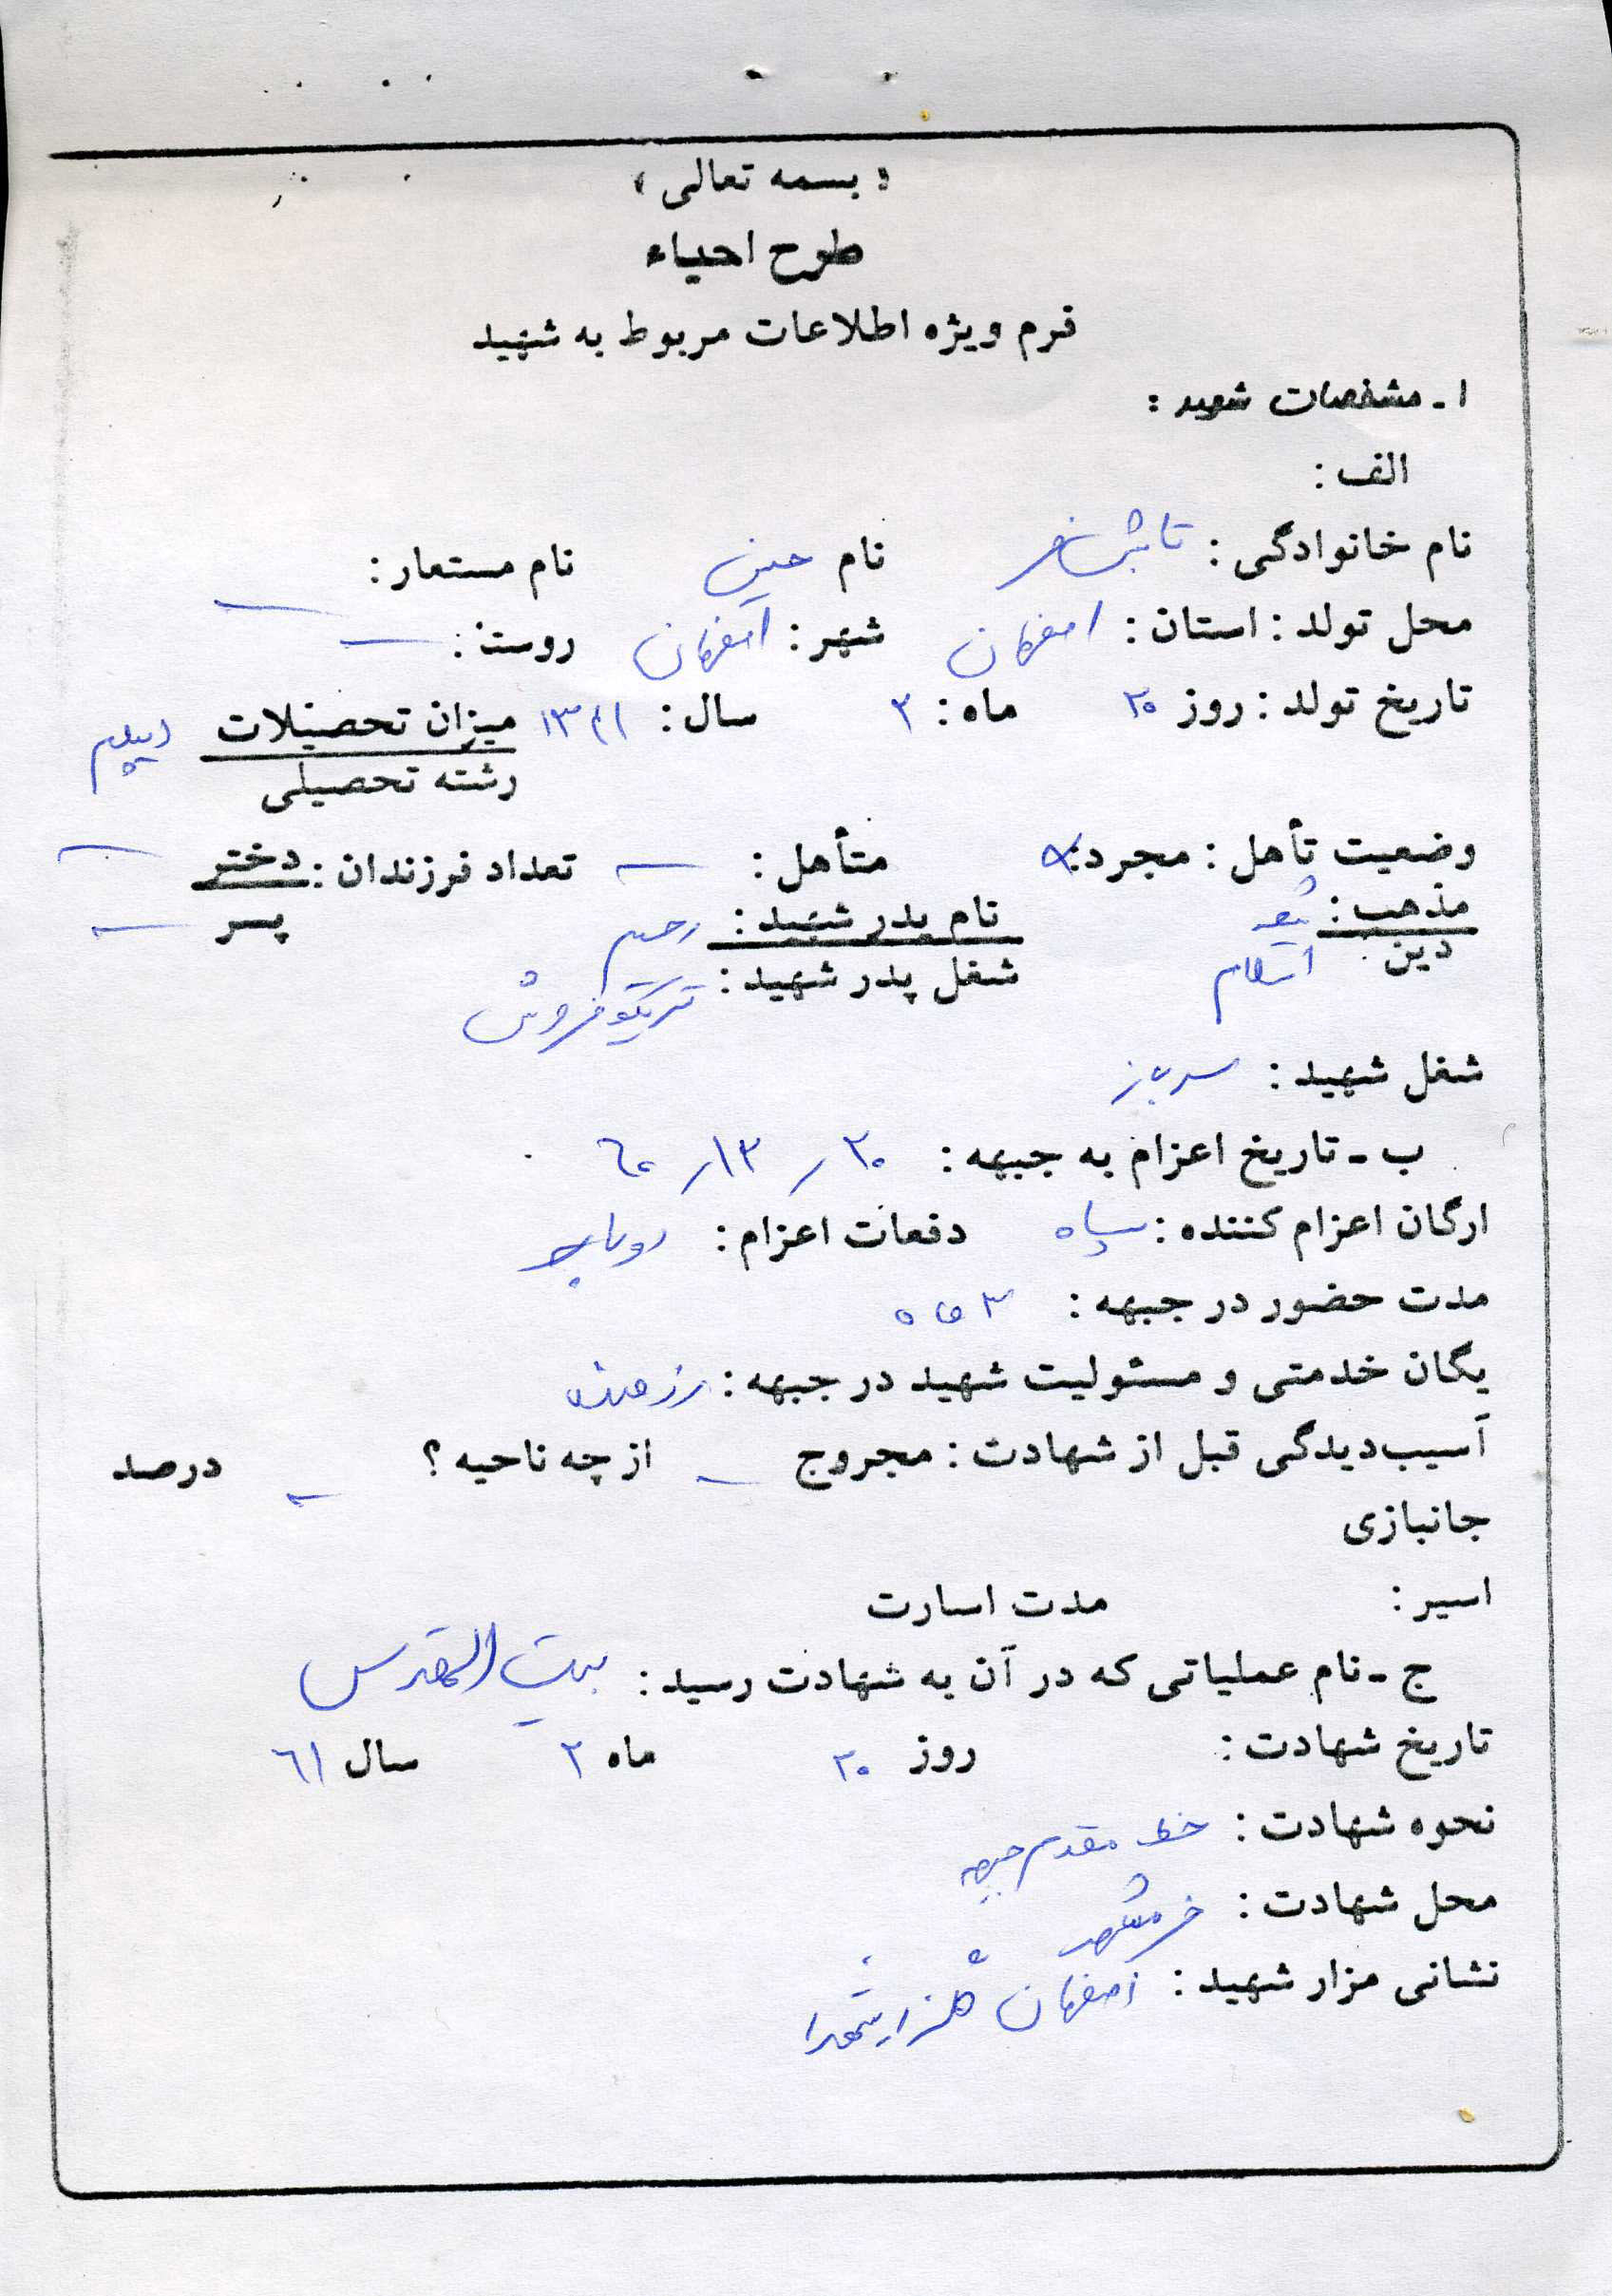 « بسمه تعالی »
طرح احیاء
فرم ویژه اطلاعات مربوط به شهید
۱ ـ مشخصات شهید :
الف :
نام خانوادگی : نام حسین نام مستعار : —
محل تولد : استان : اصفهان شهر : اصفهان روستا : —
تاریخ تولد : روز ۲۰ ماه : ۲ سال : ۱۳۴۱ میزان تحصیلات دیپلم
رشته تحصیلی
وضعیت تأهل : مجرد : × متأهل : — تعداد فرزندان : دختر —
پسر —
مذهب : شیعه نام پدر شهید : رحیم
دین : اسلام شغل پدر شهید : تریکو فروش
شغل شهید : سرباز
ب ـ تاریخ اعزام به جبهه : ۲۰ / ۱۲ / ۶۰
ارگان اعزام کننده : سپاه دفعات اعزام : دوبار
مدت حضور در جبهه : ۳ ماه
یگان خدمتی و مسئولیت شهید در جبهه : رزمنده
آسیب‌دیدگی قبل از شهادت : مجروح — از چه ناحیه ؟ — درصد
جانبازی
اسیر : مدت اسارت
ج ـ نام عملیاتی که در آن به شهادت رسید : بیت المقدس
تاریخ شهادت : روز ۲۰ ماه ۲ سال ۶۱
نحوه شهادت : خط مقدم جبهه
محل شهادت : خرمشهر
نشانی مزار شهید : اصفهان گلزار شهدا